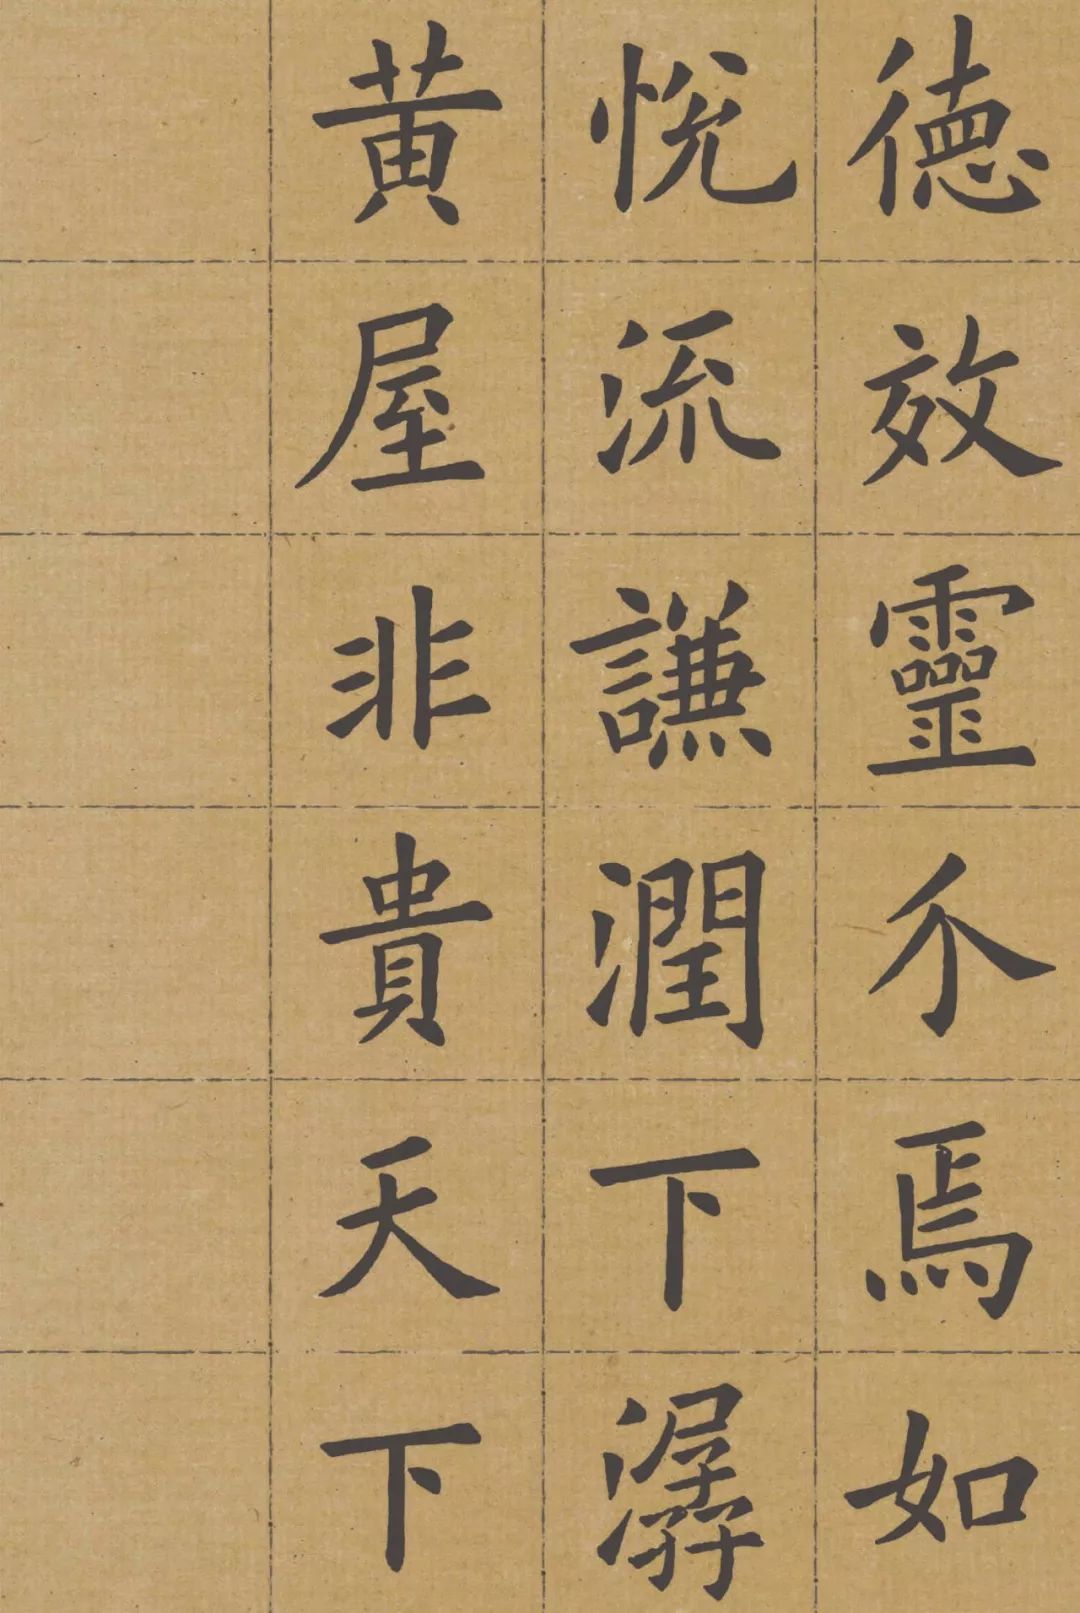 德效靈不焉如
悅流謙潤下潺
黃屋非貴天下